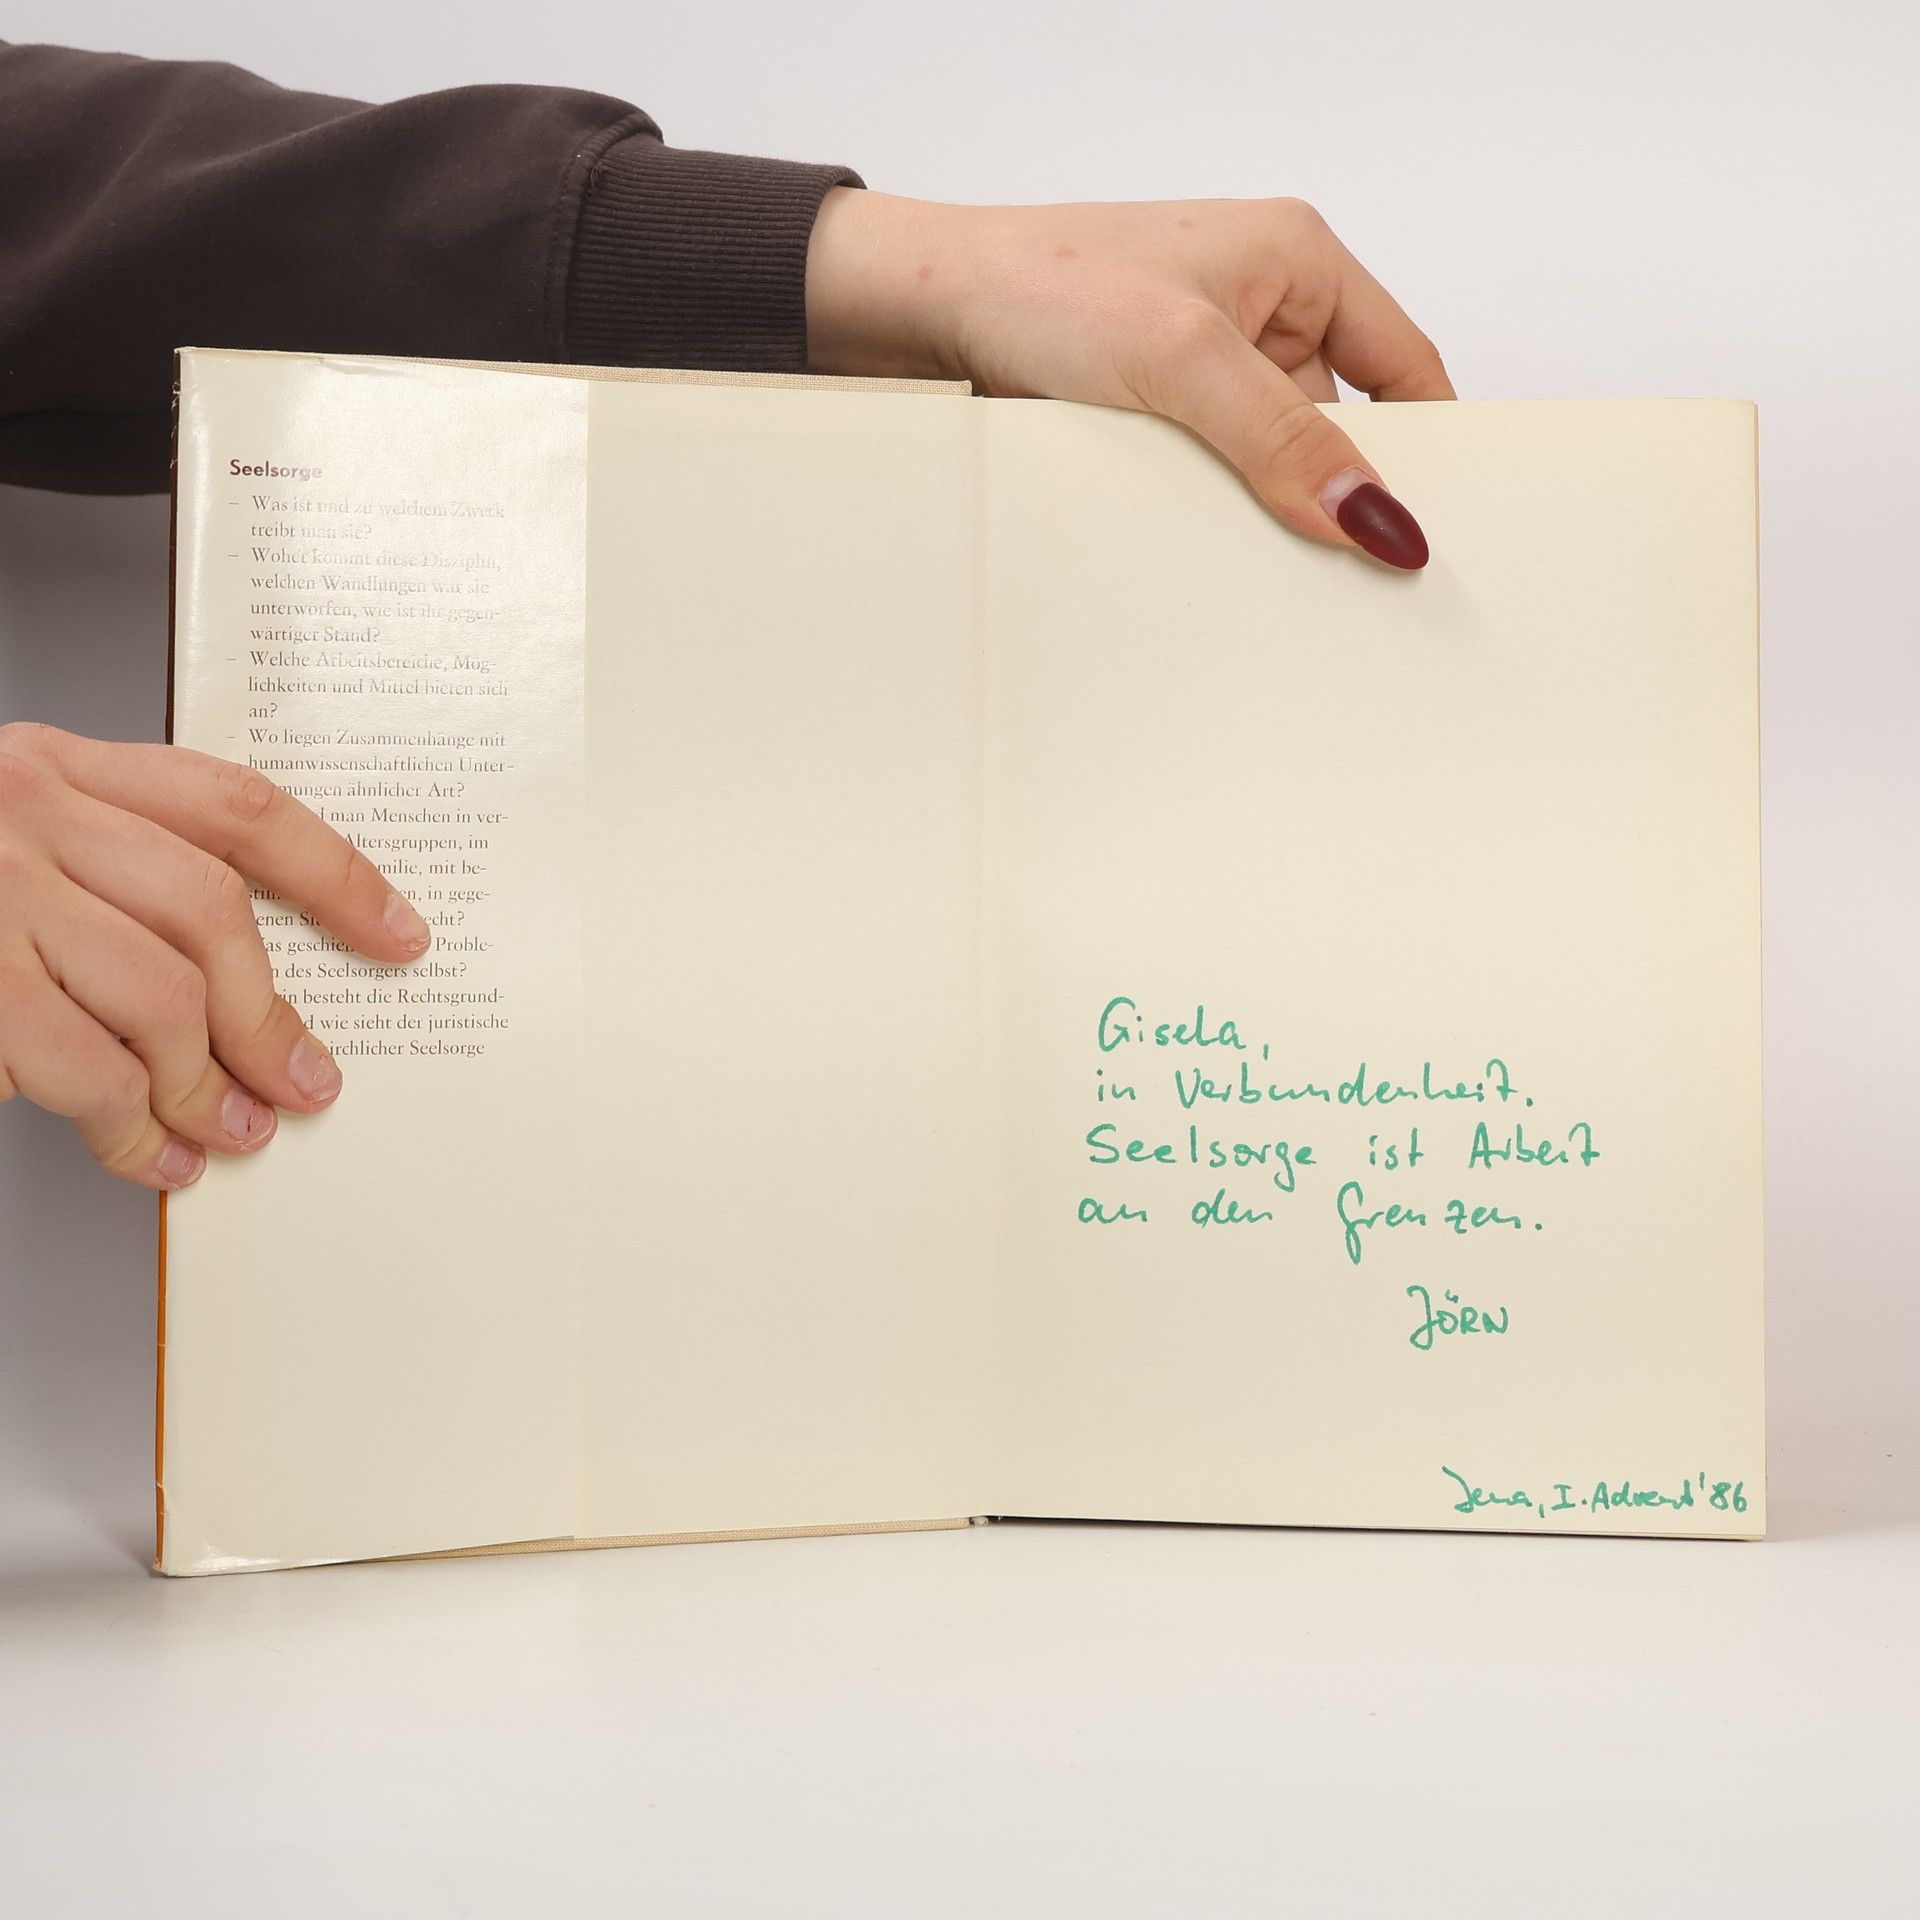 Seelsorge
– Was ist und zu welchem Zweck
treibt man sie?
– Woher kommt diese Disziplin,
welchen Wandlungen war sie
unterworfen, wie ist ihr gegen-
wärtiger Stand?
– Welche Arbeitsbereiche, Mög-
lichkeiten und Mittel bieten sich
an?
– Wo liegen Zusammenhänge mit
humanwissenschaftlichen Unter-
ähnlicher Art?
man Menschen in ver-
Altersgruppen, im
mit be-
in gege-
Proble-
des Seelsorgers selbst?
besteht die Rechtsgrund-
wie sieht der juristische
kirchlicher Seelsorge
Gisela,
in Verbundenheit.
Seelsorge ist Arbeit
an den Grenzen.
JÖRN
Jena, I. Advent '86